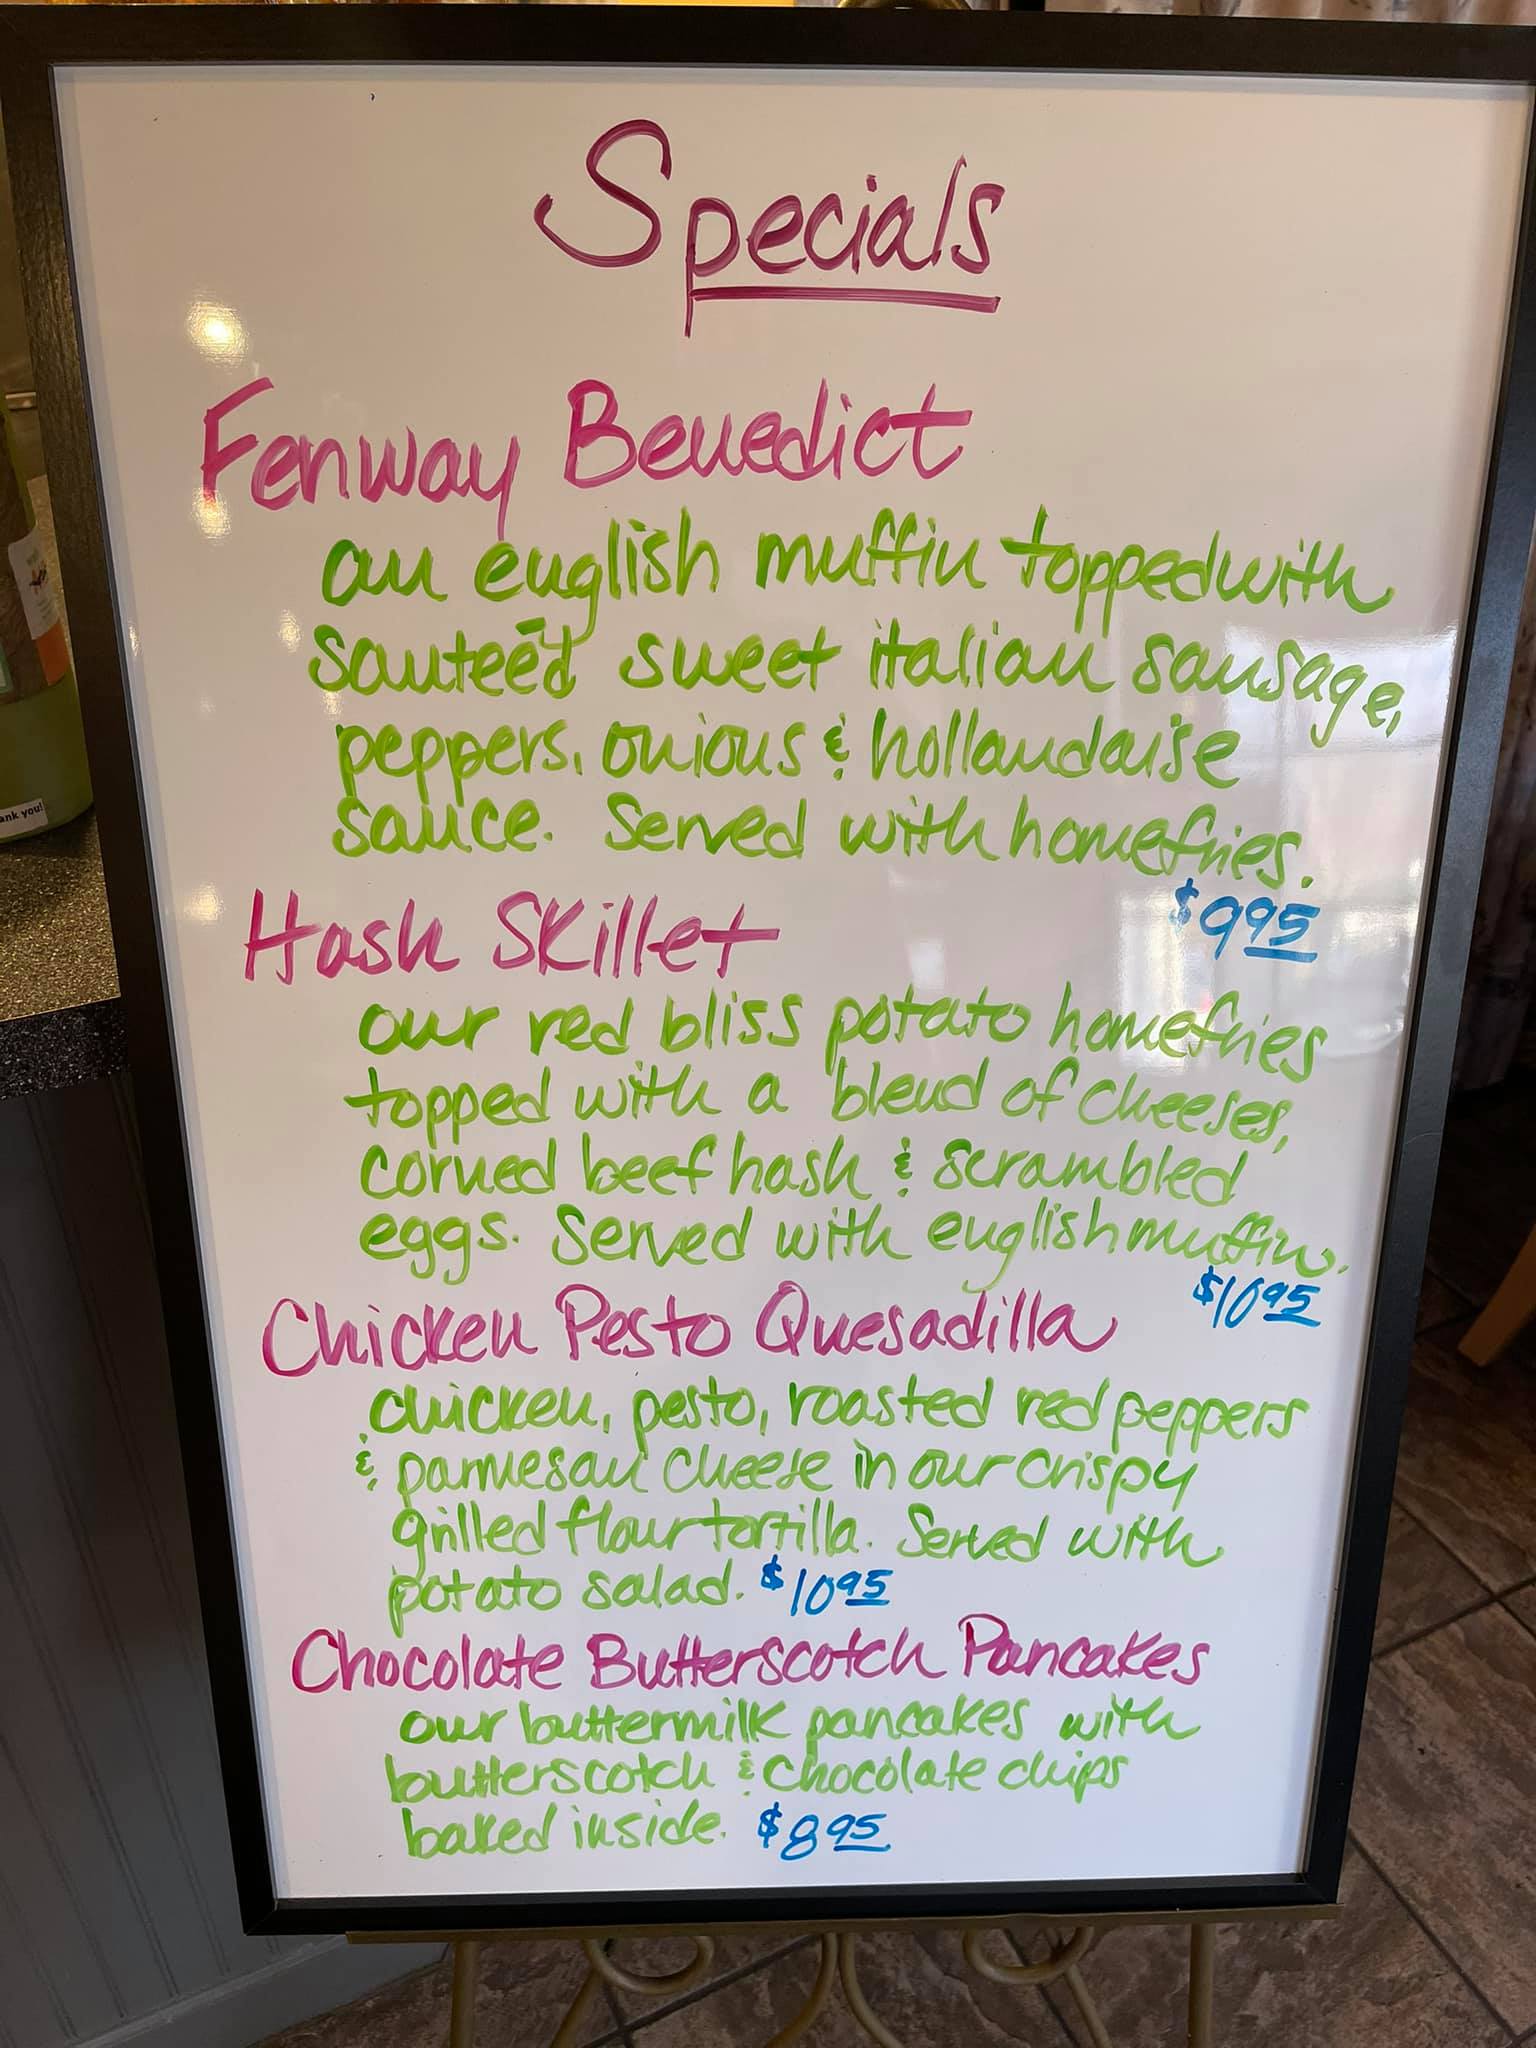 Specials
Fenway Benedict
an english muffin topped with
sauteed sweet italian sausage,
peppers, onions & hollandaise
sauce. Served with homefries.
$9.95
Hash Skillet
our red bliss potato homefries
topped with a blend of cheeses,
corned beef hash & scrambled
eggs. Served with english muffin.
$10.95
Chicken Pesto Quesadilla
chicken, pesto, roasted red peppers
& parmesan cheese in our crispy
grilled flour tortilla. Served with
potato salad. $10.95
Chocolate Butterscotch Pancakes
our buttermilk pancakes with
butterscotch & chocolate chips
baked inside. $8.95
ank you!